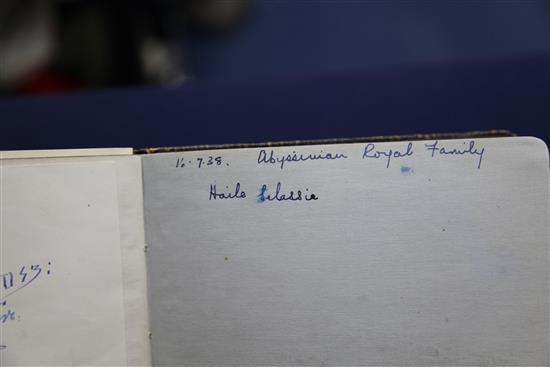 16.7.38. Abyssinian Royal Family
Haile Selassie